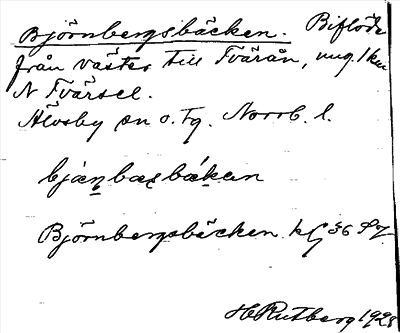 Björnbergsbäcken. Biflöde
från väster till Tvärån, ung. 1 km
N Tvärsel.
Älvsby sn o. tg. Norrb. l.
bjän̥bæʂbák̥en
Björnbergsbäcken kG 36 Äg
H Rutberg 1928